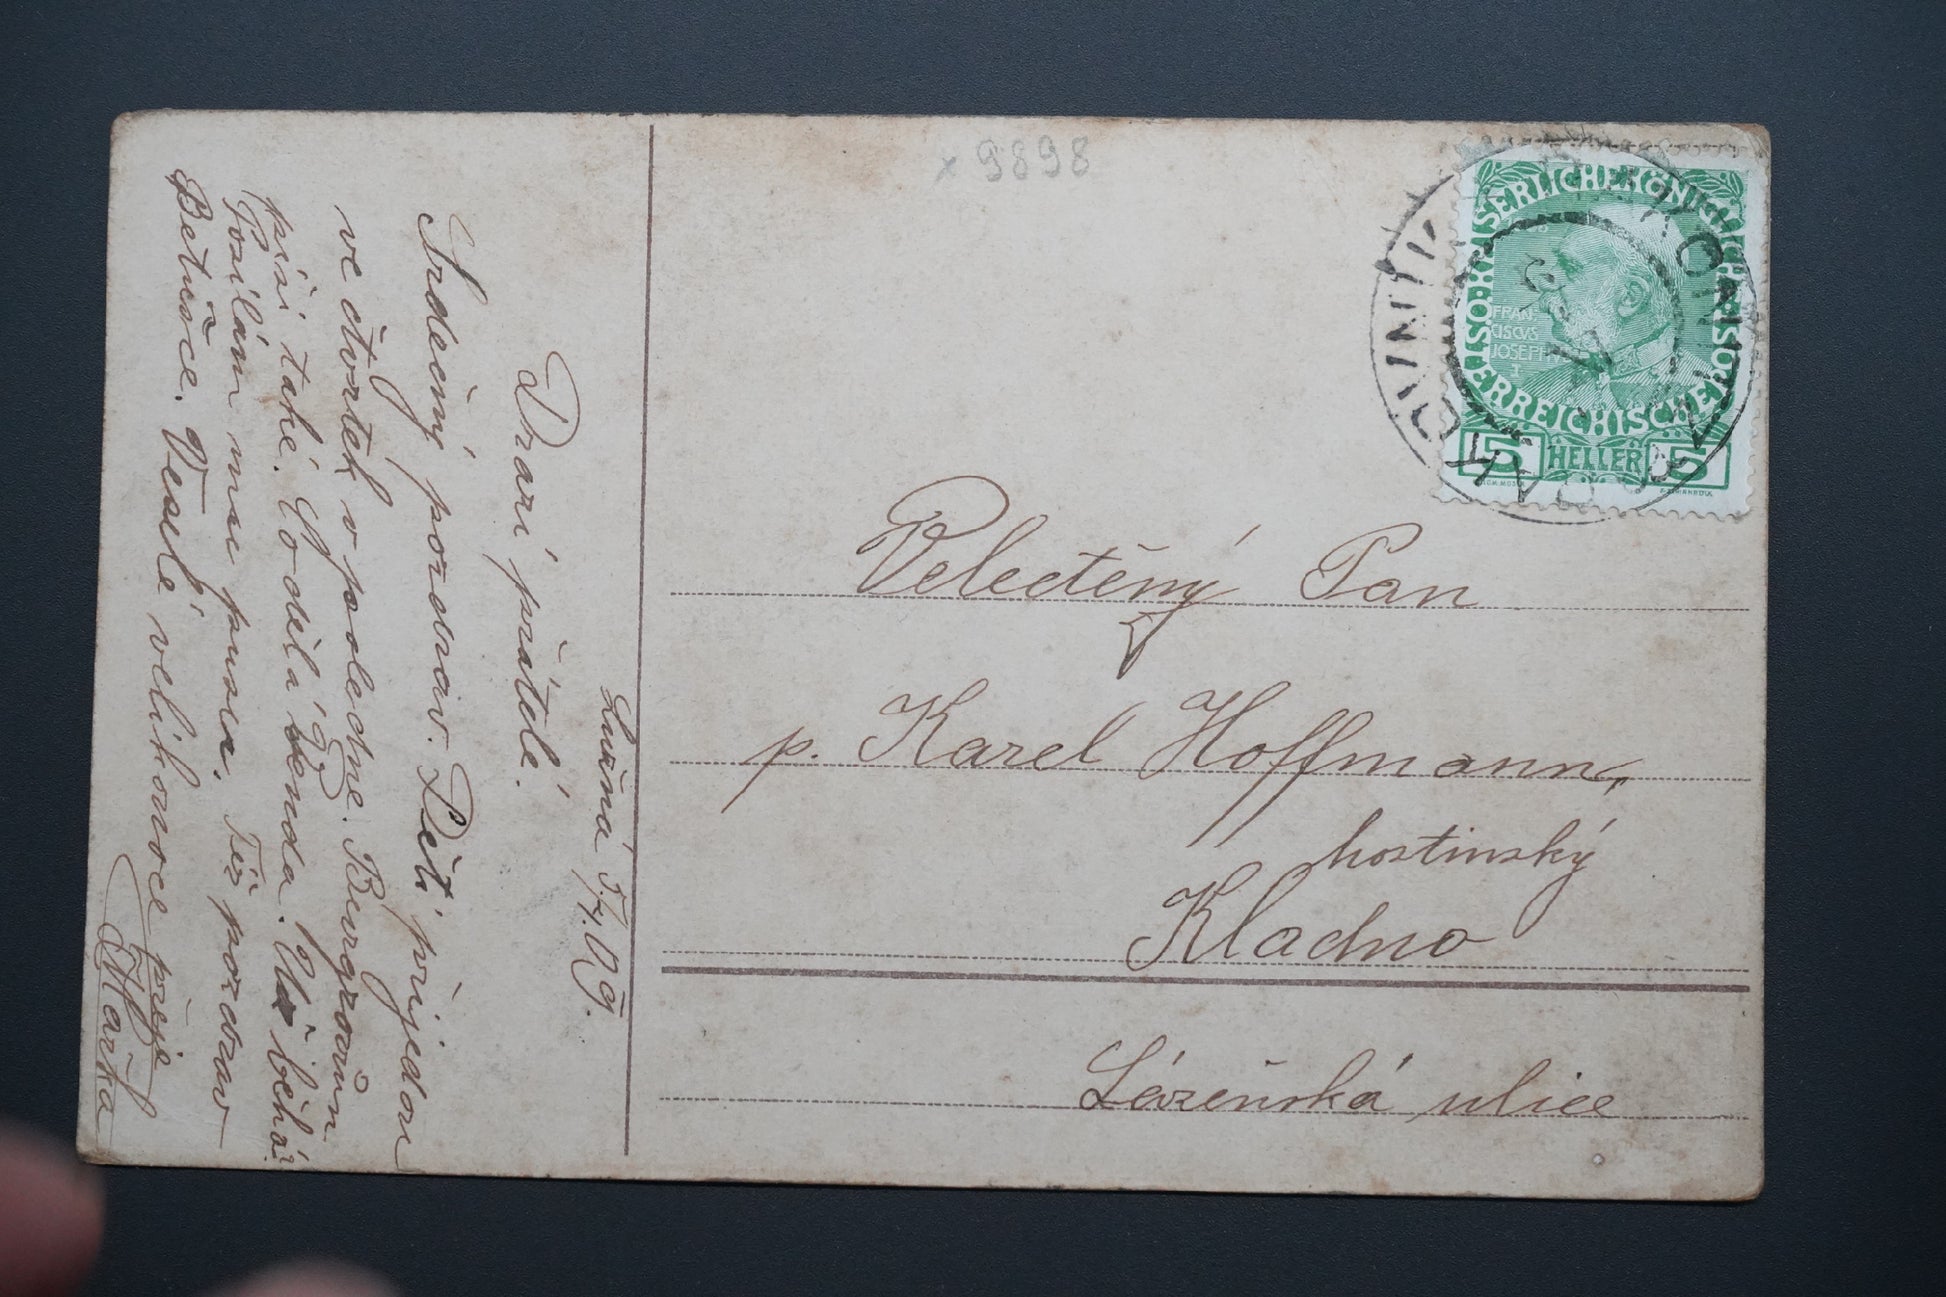 x 9898
KAISERLICHE KÖNIGLICHE ÖSTERREICHISCHE POST
FRAN-
CISCVS
JOSEPH
I
5 HELLER 5
Velectěný Pan
p. Karel Hoffmann,
hostinský
Kladno
Lázeňská ulice
Lužná 5/4. 09.
Drazí přátelé.
Srdečný pozdrav. Pepi přijedou
ve čtvrtek v poledne. Bergrovům
píši také. Co dělá Zenda. Už běhá?
Posílám mu pusu. Též pozdrav
Betušce. Veselé velikonoce přeje
Mařka